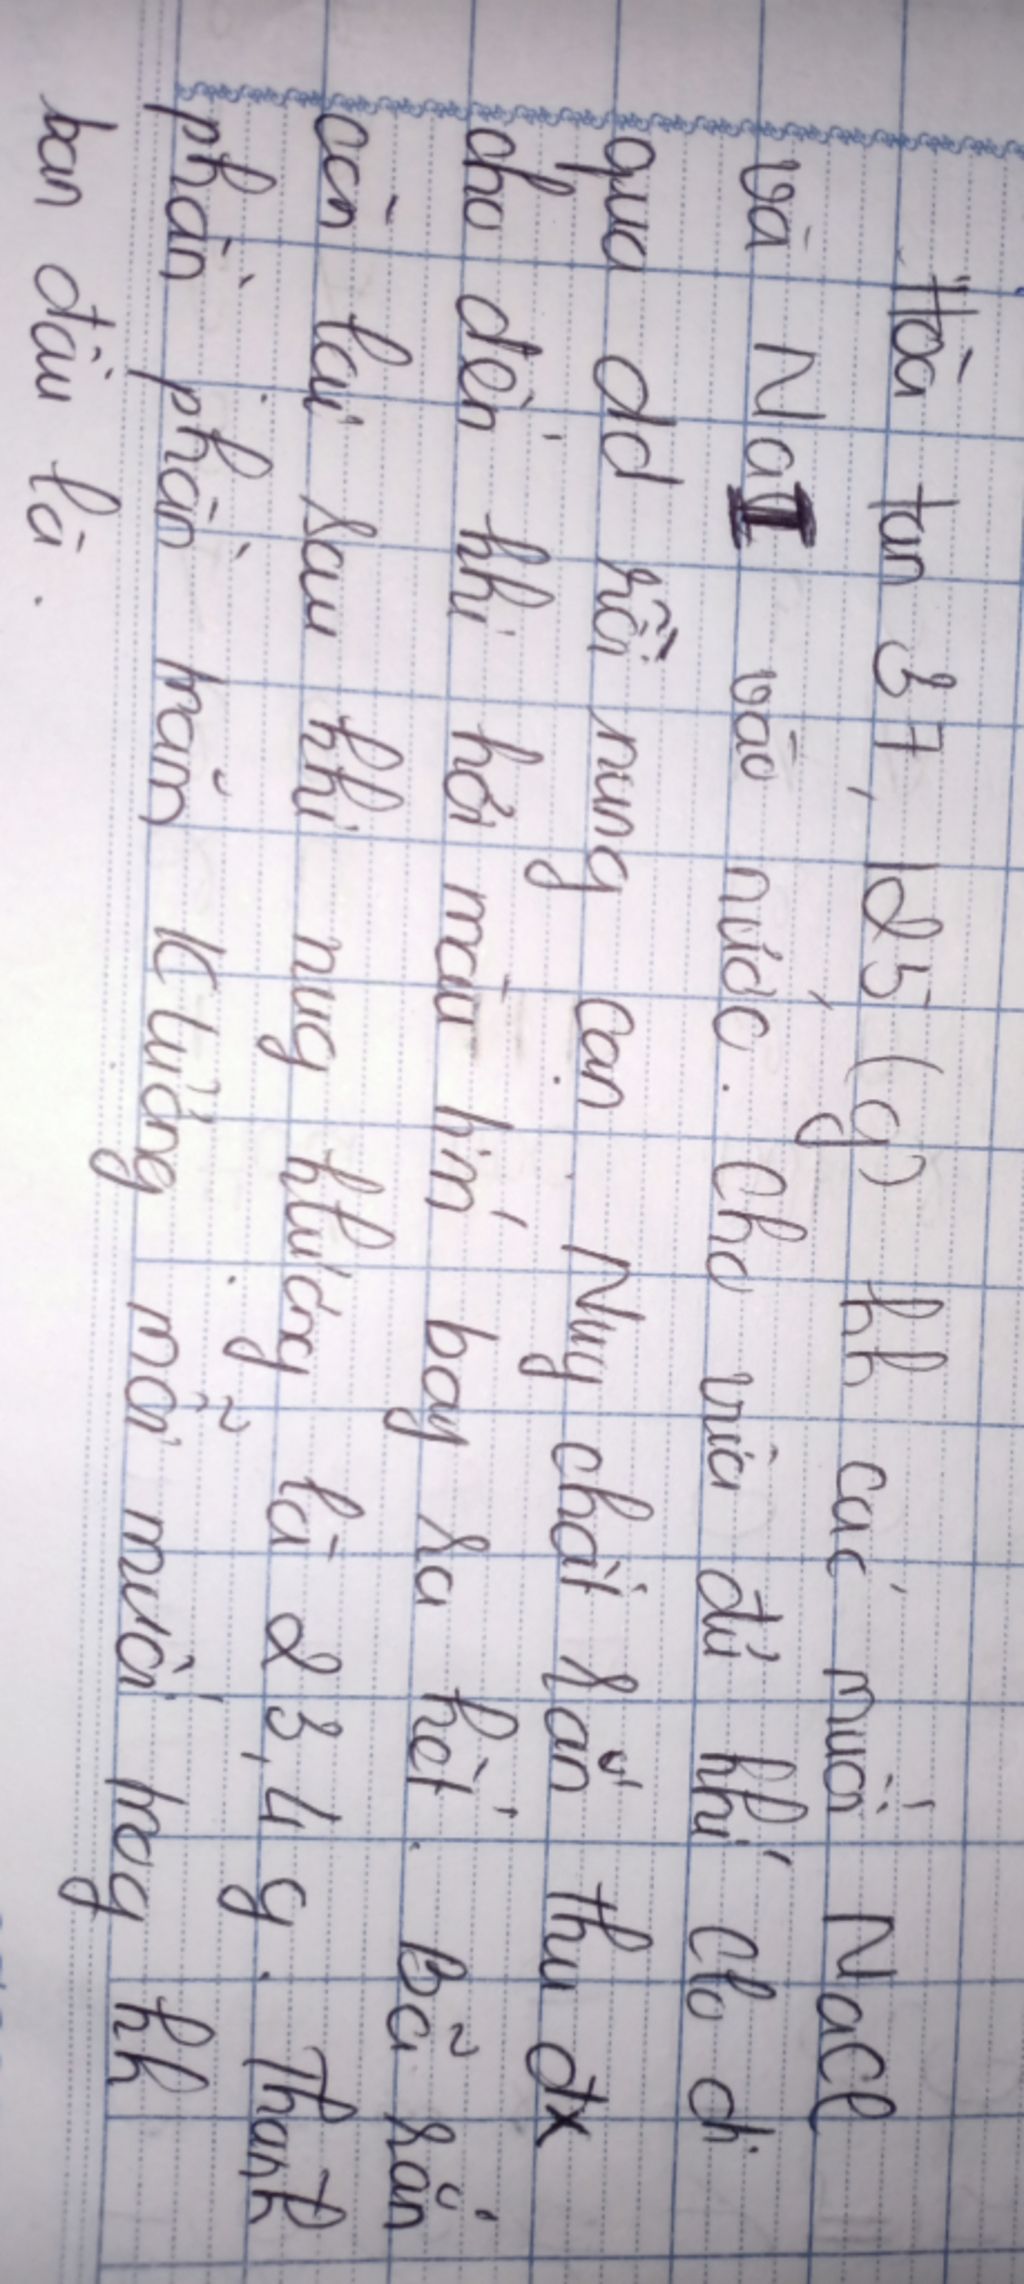 Hòa tan 37,125 (g) hh các muối NaCl
và NaI vào nước. Cho vừa đủ khí Clo đi
qua dd rồi nung cạn. Nug chất rắn thu đx
cho đến khi hơi màu tím bay ra hết. Bã rắn
còn lại sau khi nug klượng là 23,4 g. Thành
phần phần trăm klượng mỗi muối trog hh
ban đầu là.